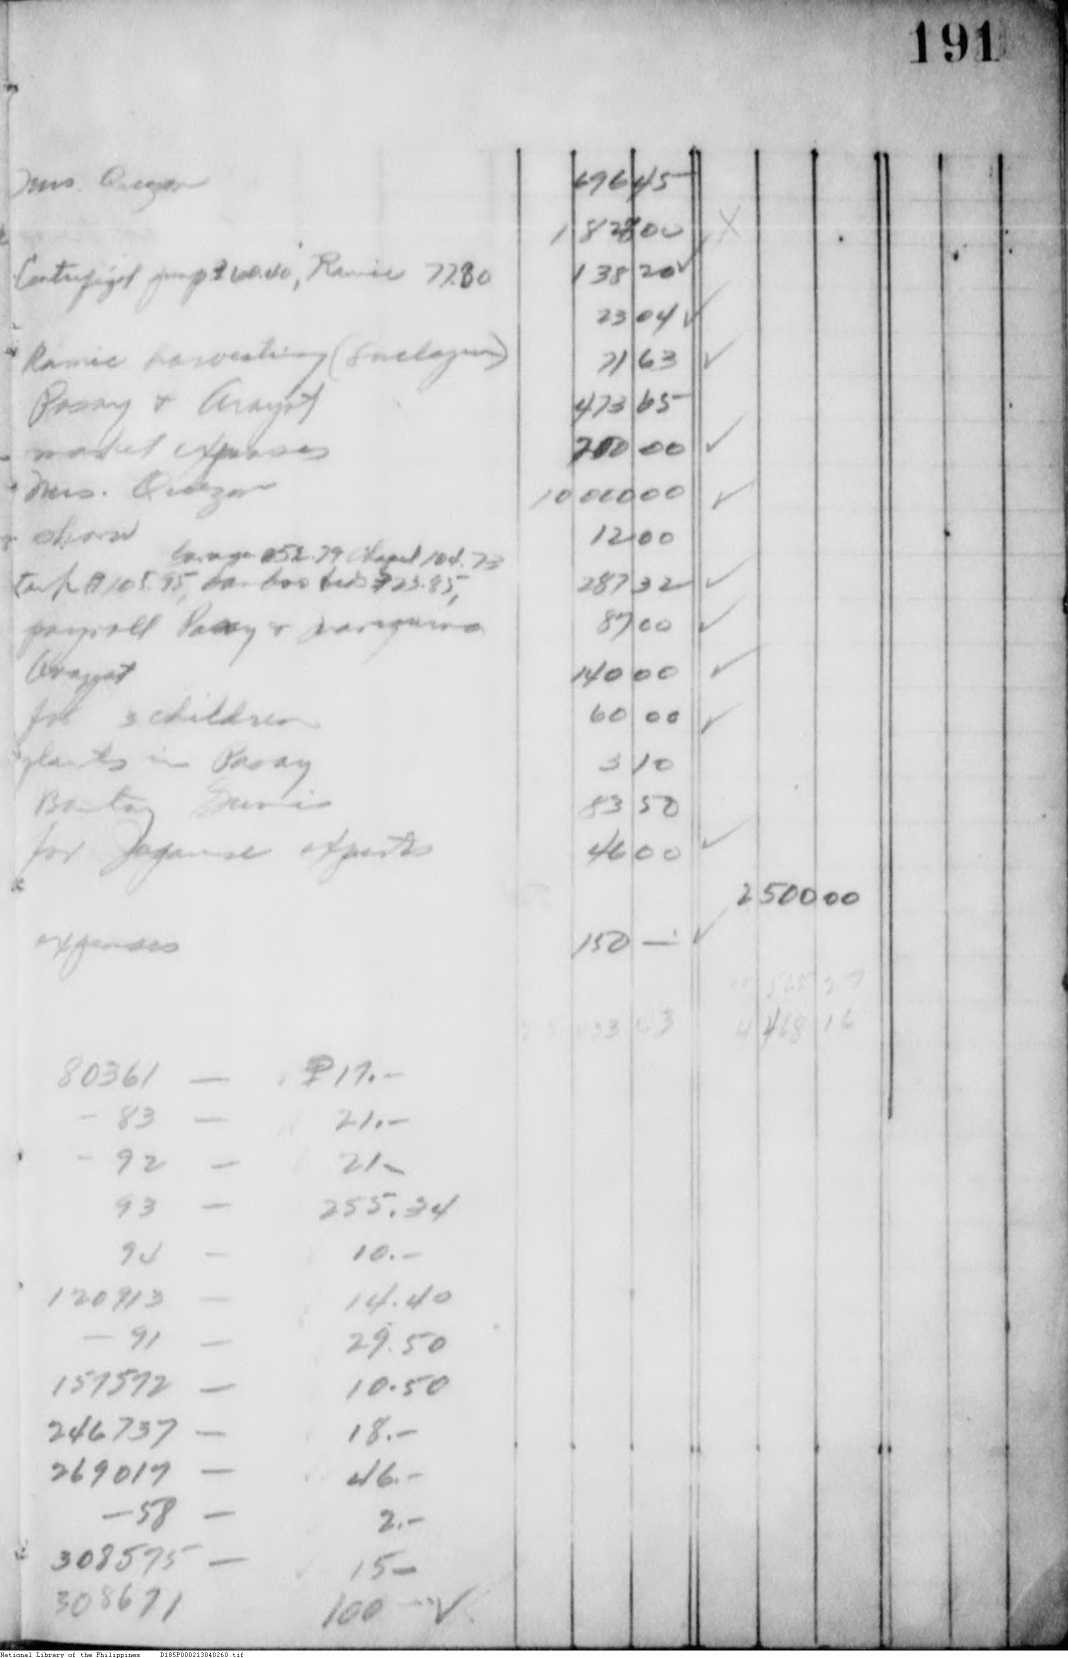 191
Mrs. Quezon 696 45
1 828 00 X
Centrifugal pump ₱60.40, Ramie 77.80 138 20 ✓
23 04 ✓
Ramie harvesting 71 63 ✓
Pasay & Arayat 473 65
model expenses 200 00 ✓
Mrs. Quezon 10 000 00 ✓
12 00
52.79 Chapel 104.73
₱105.95, bamboo beds ₱23.85, 287 32 ✓
payroll Pasay & Mariquina 87 00 ✓
Arayat 140 00 ✓
for 3 children 60 00 ✓
plants in Pasay 3 10
Bantay 83 50
for Japanese experts 46 00 ✓
2 500 00
expenses 150 — ✓
565 27
33 43 4 468 16
80361 — ₱17.-
- 83 — 21.-
- 92 — 21-
93 — 255.34
94 — 10.-
120913 — 14.40
- 91 — 29.50
157572 — 10.50
246737 — 18.-
269017 — 46.-
- 58 — 2.-
308575 — 15-
308671 100 — ✓
National Library of the Philippines D185P000213040260.tif